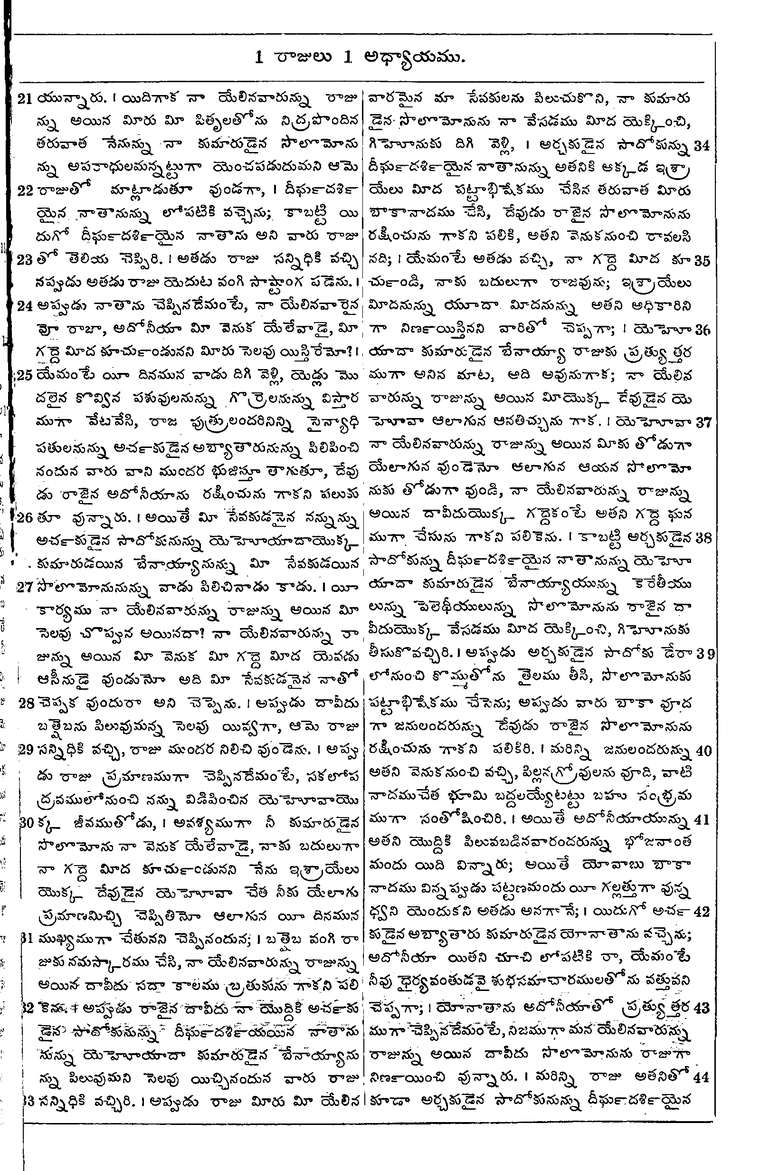 1 రాజులు 1 అధ్యాయము.
21 యున్నారు. । యిదిగాక నా యేలినవారున్ను రాజు
న్ను అయిన మీరు మీ పితృలతోను నిద్రపొందిన
తరువాత నేనున్ను నా కుమారుడైన సొలొమోను
న్ను అపరాధులమన్నట్టుగా యెంచపడుదుమని ఆమె
22 రాజుతో మాట్లాడుతూ వుండగా, । దీర్ఘదర్శి
యైన నాతానున్ను లోపటికి వచ్చెను; కాబట్టి యి
దుగో దీర్ఘదర్శియైన నాతాను అని వారు రాజు
23 తో తెలియ చెప్పిరి. । అతడు రాజు సన్నిధికి వచ్చి
నప్పుడు అతడు రాజు యెదుట వంగి సాష్టాంగ పడెను. ।
24 అప్పుడు నాతాను చెప్పినదేమంటే, నా యేలినవారైన
వో రాజా, అదోనీయా మీ వెనుక యేలేవాడై, మీ
గద్దె మీద కూర్చుండునని మీరు సెలవు యిస్తిరేమో? ।
25 యేమంటే యీ దినమున వాడు దిగి వెళ్లి, యెడ్లు మొ
దలైన కొవ్విన పశువులనున్ను గొర్రెలనున్ను విస్తార
ముగా వేటవేసి, రాజ పుత్రులందరినిన్ని సైన్యాధి
పతులనున్ను అర్చకుడైన అబ్యాతారునున్ను పిలిపించి
నందున వారు వాని ముందర భుజిస్తూ తాగుతూ, దేవు
డు రాజైన అదోనీయాను రక్షించును గాకని పలుకు
26 తూ వున్నారు. । అయితే మీ సేవకుడనైన నన్నున్ను
అర్చకుడైన సాదోకునున్ను యెహోయాదాయొక్క
కుమారుడయిన బేనాయ్యానున్ను మీ సేవకుడయిన
27 సొలొమోనునున్ను వాడు పిలిచినాడు కాడు. । యీ
కార్యము నా యేలినవారున్ను రాజున్ను అయిన మీ
సెలవు చొప్పున అయినదా? నా యేలినవారున్ను రా
జున్ను అయిన మీ వెనుక మీ గద్దె మీద యెవడు
ఆసీనుడై వుండునో అది మీ సేవకుడనైన నాతో
28 చెప్పక వుందురా అని చెప్పెను. । అప్పుడు దావీదు
బత్షెబను పిలువుమన్న సెలవు యివ్వగా, ఆమె రాజు
29 సన్నిధికి వచ్చి, రాజు ముందర నిలిచి వుండెను. । అప్పు
డు రాజు ప్రమాణముగా చెప్పినదేమంటే, సకలోప
ద్రవములోనుంచి నన్ను విడిపించిన యెహోవాయొ
30 క్క జీవముతోడు, । అవశ్యముగా నీ కుమారుడైన
సొలొమోను నా వెనుక యేలేవాడై, నాకు బదులుగా
నా గద్దె మీద కూర్చుండునని నేను ఇశ్రాయేలు
యొక్క దేవుడైన యెహోవా చేత నీకు యేలాగు
ప్రమాణమిచ్చి చెప్పితినో ఆలాగున యీ దినమున
31 ముఖ్యముగా చేతునని చెప్పినందున; । బత్షెబ వంగి రా
జుకు నమస్కారము చేసి, నా యేలినవారున్ను రాజున్ను
అయిన దావీదు సదా కాలము బ్రతుకును గాకని పలి
32 కెను. । అప్పుడు రాజైన దావీదు నా యొద్దికి అర్చకు
డైన సాదోకునున్ను దీర్ఘదర్శియయిన నాతాను
నున్ను యెహోయాదా కుమారుడైన బేనాయ్యాను
న్ను పిలువుమని సెలవు యిచ్చినందున వారు రాజు
33 సన్నిధికి వచ్చిరి. । అప్పుడు రాజు మీరు మీ యేలిన
వారమైన మా సేవకులను పిలుచుకొని, నా కుమారు
డైన సొలొమోనును నా వేసడము మీద యెక్కించి,
గిహోనుకు దిగి వెళ్లి, । అర్చకుడైన సాదోకున్ను 34
దీర్ఘదర్శియైన నాతానున్ను అతనికి అక్కడ ఇశ్రా
యేలు మీద పట్టాభిషేకము చేసిన తరువాత మీరు
బాకానాదము చేసి, దేవుడు రాజైన సొలొమోనును
రక్షించును గాకని పలికి, అతని వెనుకనుంచి రావలసి
నది; । యేమంటే అతడు వచ్చి, నా గద్దె మీద కూ 35
ర్చుండి, నాకు బదులుగా రాజవును; ఇశ్రాయేలు
మీదనున్ను యూదా మీదనున్ను అతని అధికారిని
గా నిర్ణయిస్తినని వారితో చెప్పగా; । యెహో 36
యాదా కుమారుడైన బేనాయ్యా రాజుకు ప్రత్యుత్తర
ముగా అనిన మాట, ఆది అవునుగాక; నా యేలిన
వారున్ను రాజున్ను అయిన మీయొక్క దేవుడైన యె
హోవా ఆలాగున ఆనతిచ్చును గాక. । యెహోవా 37
నా యేలినవారున్ను రాజున్ను అయిన మీకు తోడుగా
యేలాగున వుండెనో ఆలాగున ఆయన సొలొమో
నుకు తోడుగా వుండి, నా యేలినవారున్ను రాజున్ను
అయిన దావీదుయొక్క గద్దెకంటే అతని గద్దె ఘన
ముగా చేసును గాకని పలికెను. । కాబట్టి అర్చకుడైన 38
సాదోకున్ను దీర్ఘదర్శియైన నాతానున్ను యెహో
యాదా కుమారుడైన బేనాయ్యాయున్ను కెరేతీయు
లున్ను పెలెథీయులున్ను సొలొమోనును రాజైన దా
వీదుయొక్క వేసడము మీద యెక్కించి, గిహోనుకు
తీసుకొవచ్చిరి. । అప్పుడు అర్చకుడైన సాదోకు డేరా 39
లోనుంచి కొమ్ముతోను తైలము తీసి, సొలొమోనుకు
పట్టాభిషేకము చేసెను; అప్పుడు వారు బాకా వూద
గా జనులందరున్ను దేవుడు రాజైన సొలొమోనును
రక్షించును గాకని పలికిరి. । మరిన్ని జనులందరున్ను 40
అతని వెనుకనుంచి వచ్చి, పిల్లనగ్రోవులను వూది, వాటి
నాదముచేత భూమి బద్దలయ్యేటట్టు బహు సంభ్రమ
ముగా సంతోషించిరి. । అయితే అదోనీయాయున్ను 41
అతని యొద్దికి పిలువబడినవారందరున్ను భోజనాంత
మందు యిది విన్నారు; అయితే యోవాబు బాకా
నాదము విన్నప్పుడు పట్టణమందు యీ గల్లత్తుగా వున్న
ధ్వని యెందుకని అతడు అనగానే; । యిదుగో అర్చ 42
కుడైన అబ్యాతారు కుమారుడైన యోనాతాను వచ్చెను;
అదోనీయా యితని చూచి లోపటికి రా, యేమంటే
నీవు ధైర్యవంతుడవై శుభసమాచారములతోను వత్తువని
చెప్పగా; । యోనాతాను అదోనీయాతో ప్రత్యుత్తర 43
ముగా చెప్పినదేమంటే, నిజముగా మన యేలినవారున్ను
రాజున్ను అయిన దావీదు సొలొమోనును రాజుగా
నిర్ణయించి వున్నారు. । మరిన్ని రాజు అతనితో 44
కూడా అర్చకుడైన సాదోకునున్ను దీర్ఘదర్శియైన